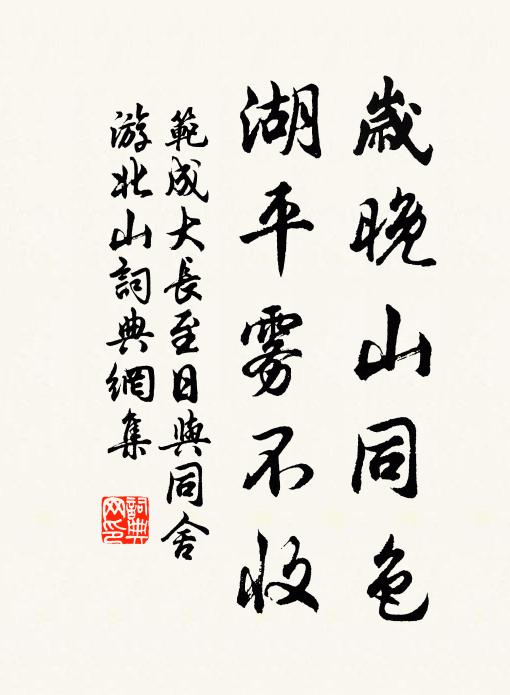 歲晚山同色
湖平雾不收
範成大長至日與同舍
游北山詞典網集
詞典
网印